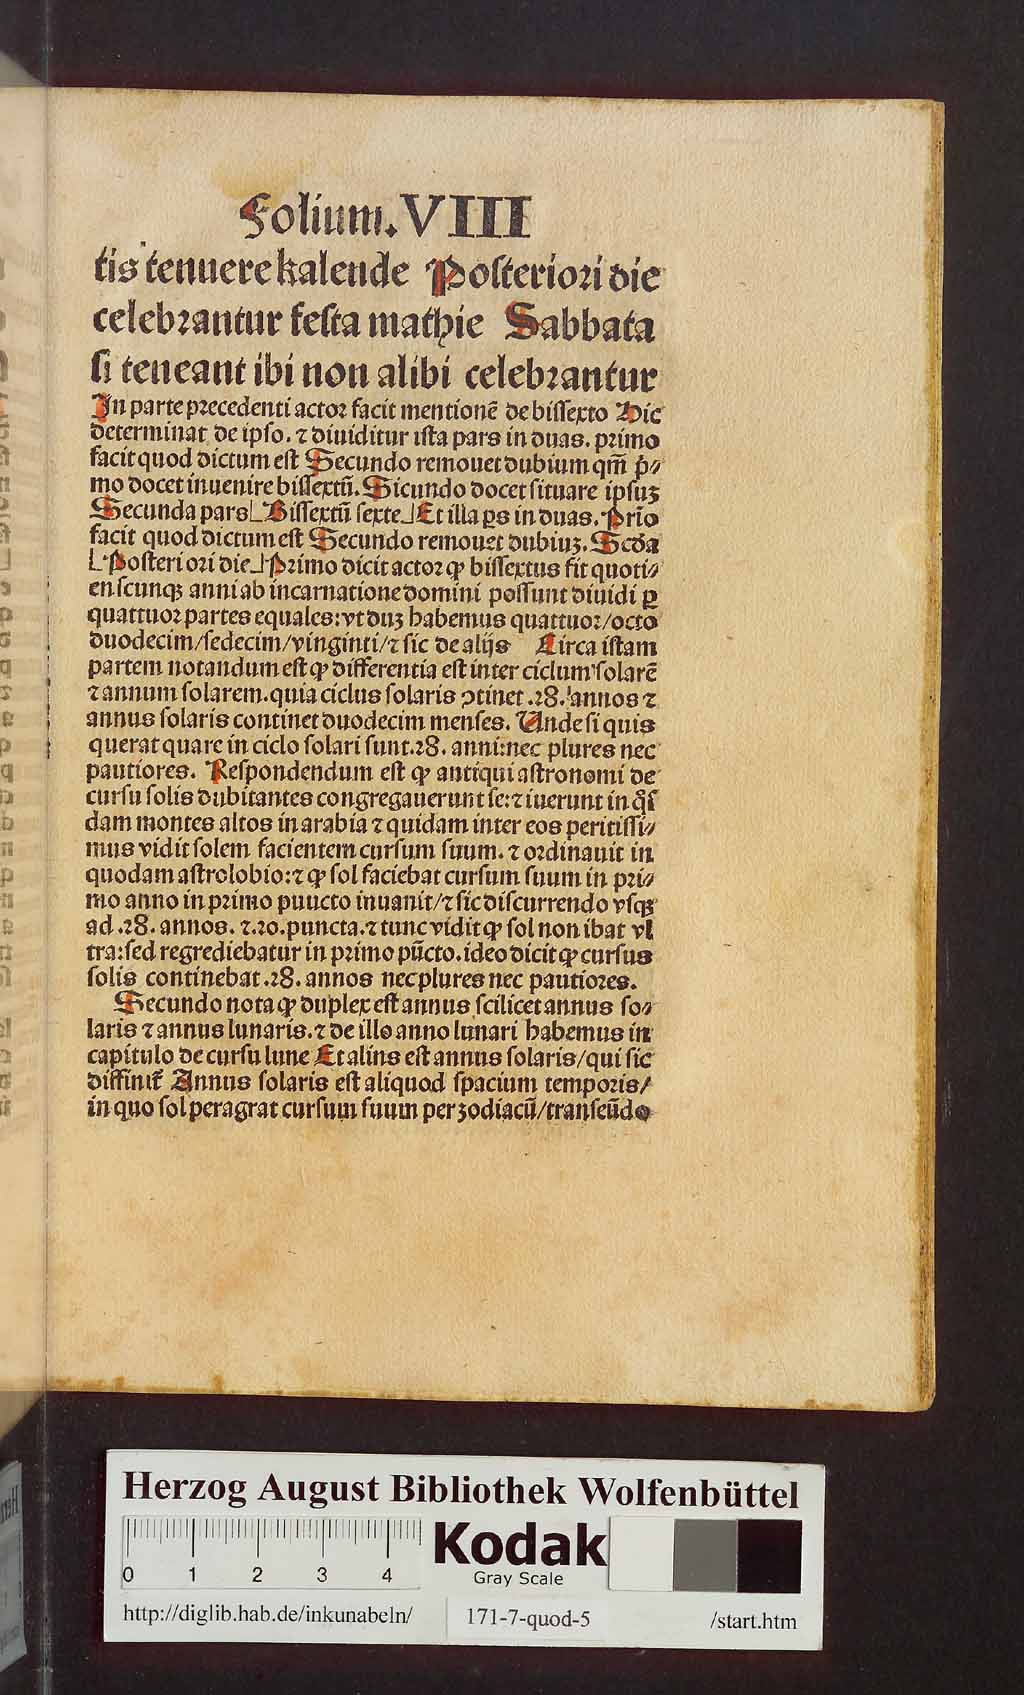 Folium. VIII
tis tenuere kalende Posteriori die
celebrantur festa mathie Sabbata
si teneant ibi non alibi celebrantur
In parte precedenti actor facit mentionē de bissexto Hic
determinat de ipso. ⁊ diuiditur ista pars in duas. primo
facit quod dictum est Secundo remouet dubium qm̄ p̄⸗
mo docet inuenire bissextū. Sicundo docet situare ipsuꝫ
Secunda pars └Bissextū sexte┘ Et illa ꝑs in duas. Prīo
facit quod dictum est Secundo remouet dubiuꝫ. Scd̄a
└Posteri ori die┘ Primo dicit actor ꝙ bissextus fit quoti⸗
enscunqꝫ anni ab incarnatione domini possunt diuidi ꝑ
quattuor partes equales: vt duꝫ habemus quattuor/octo
duodecim/sedecim/vinginti/⁊ sic de alijs Circa istam
partem notandum est ꝙ differentia est inter ciclum solarē
⁊ annum solarem. quia ciclus solaris ꝯtinet .28. annos ⁊
annus solaris continet duodecim menses. Unde si quis
querat quare in ciclo solari sunt .28. anni: nec plures nec
pautiores. Respondendum est ꝙ antiqui astronomi de
cursu solis dubitantes congregauerunt se: ⁊ iuerunt in q̄s
dam montes altos in arabia ⁊ quidam inter eos peritissi⸗
mus vidit solem facientem cursum suum. ⁊ ordinauit in
quodam astrolobio: ⁊ ꝙ sol faciebat cursum suum in pri⸗
mo anno in primo puucto inuanit/⁊ sic discurrendo vsqꝫ
ad .28. annos. ⁊ .20. puncta. ⁊ tunc vidit ꝙ sol non ibat vl
tra: sed regrediebatur in primo pūcto. ideo dicit ꝙ cursus
solis continebat .28. annos nec plures nec pautiores.
Secundo nota ꝙ duplex est annus scilicet annus so⸗
laris ⁊ annus lunaris. ⁊ de illo anno lunari habemus in
capitulo de cursu lune Et alius est annus solaris/qui sic
diffinit̄ Annus solaris est aliquod spacium temporis/
in quo sol peragrat cursum suum per zodiacū/transeūdo
Herzog August Bibliothek Wolfenbüttel
0 1 2 3 4
Kodak
Gray Scale
http://diglib.hab.de/inkunabeln/ 171-7-quod-5 /start.htm